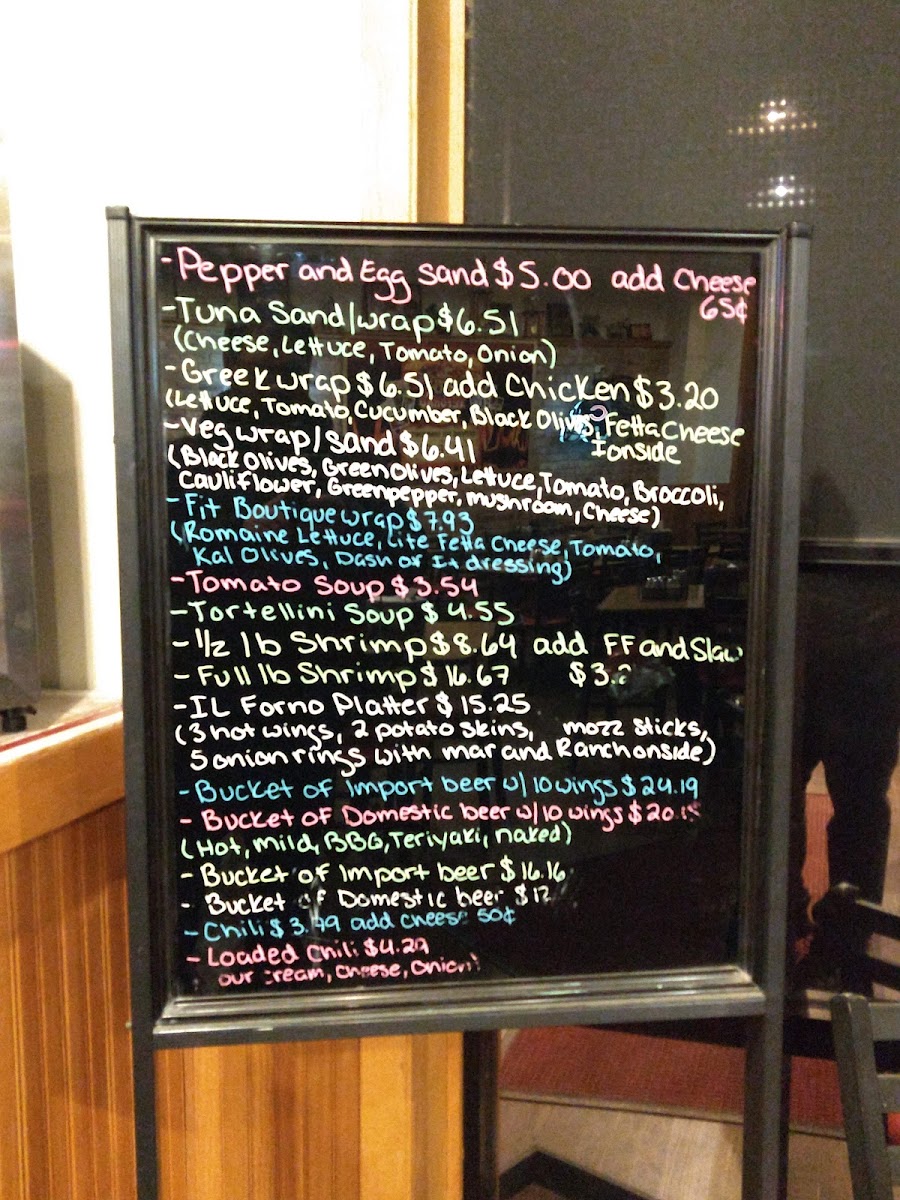 -Pepper and Egg Sand $5.00 add Cheese
65¢
-Tuna Sand/wrap $6.51
(Cheese, Lettuce, Tomato, Onion)
-Greek wrap $6.51 add Chicken $3.20
(Lettuce, Tomato, Cucumber, Black Olives, Fetta Cheese
I onside
-Veg wrap/sand $6.41
(Black Olives, Green Olives, Lettuce, Tomato, Broccoli,
Cauliflower, Greenpepper, mushroom, Cheese)
-Fit Boutique wrap $7.93
(Romaine Lettuce, Lite Fetta Cheese, Tomato,
Kal Olives, Dash of It dressing)
-Tomato Soup $3.54
-Tortellini Soup $4.55
-1/2 lb Shrimp $8.64 add FF and Slaw
-Full lb Shrimp $16.67
-IL Forno Platter $15.25
(3 hot wings, 2 potato skins, mozz sticks,
5 onion rings with mar and Ranch onside)
-Bucket of Import beer w/ 10 wings $24.19
-Bucket of Domestic beer w/ 10 wings
(Hot, mild, BBG, Teriyaki, naked)
-Bucket of Import beer $16.16
-Bucket of Domestic beer
-Chili $3.99 add cheese 50¢
-Loaded Chili $4.29
our cream, Cheese, Onion)